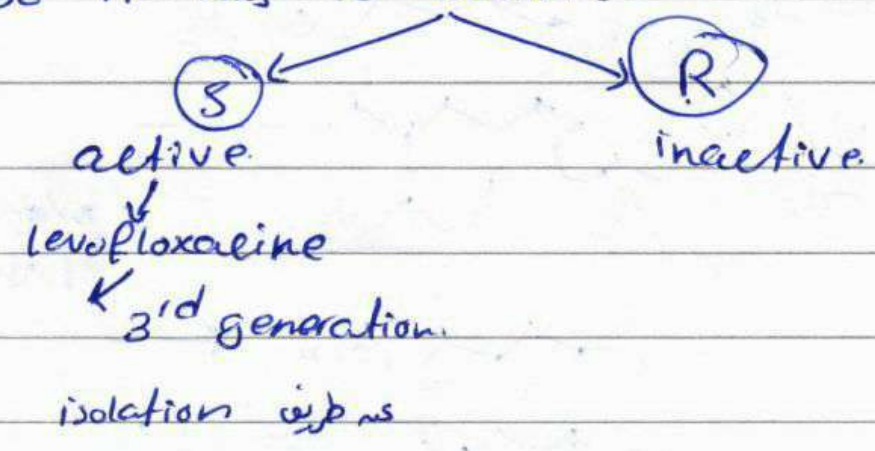 S R
active inactive
levofloxacine
3rd generation.
isolation عن طريق